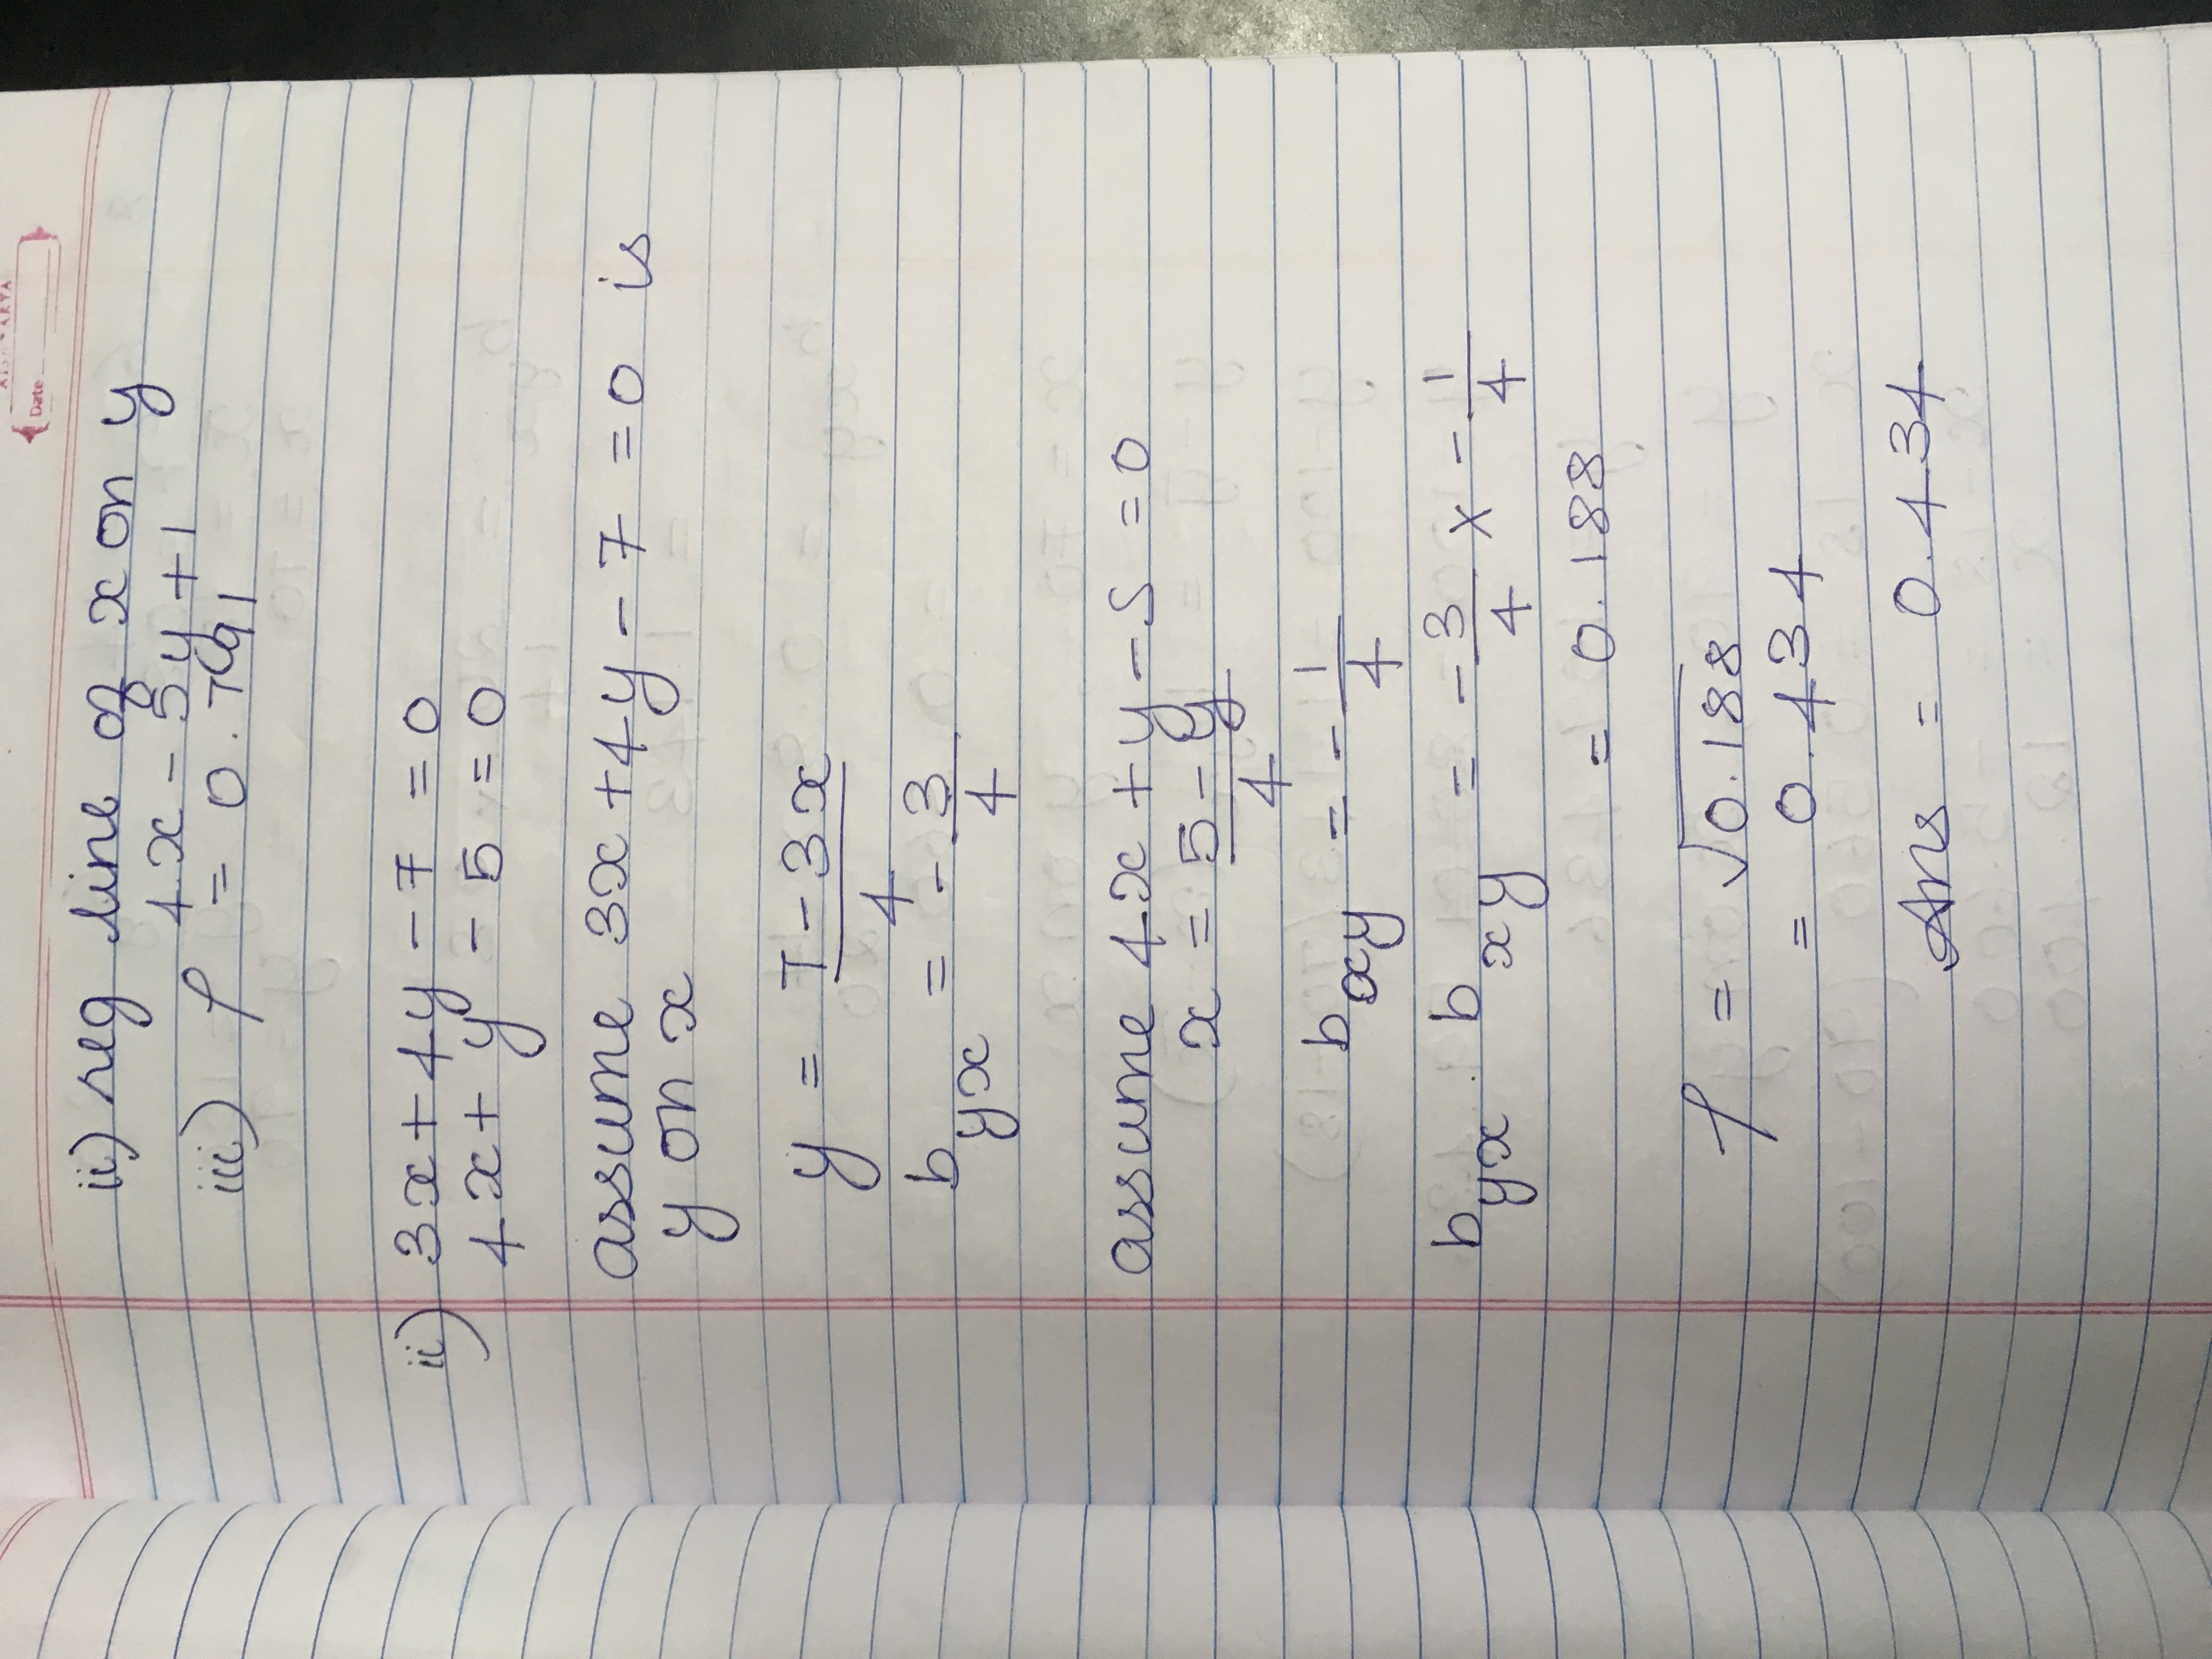 Date
ii) reg line of x on y
4x - 5y + 1
iii) r = 0.791
ii) 3x + 4y - 7 = 0
4x + y - 5 = 0
assume 3x + 4y - 7 = 0 is
y on x
y = 7 - 3x / 4
b yx = - 3/4
assume 4x + y - 5 = 0
x = 5 - y / 4
b xy = - 1/4
b yx . b xy = - 3/4 x - 1/4
= 0.188
r = √0.188
= 0.434
Ans = 0.434